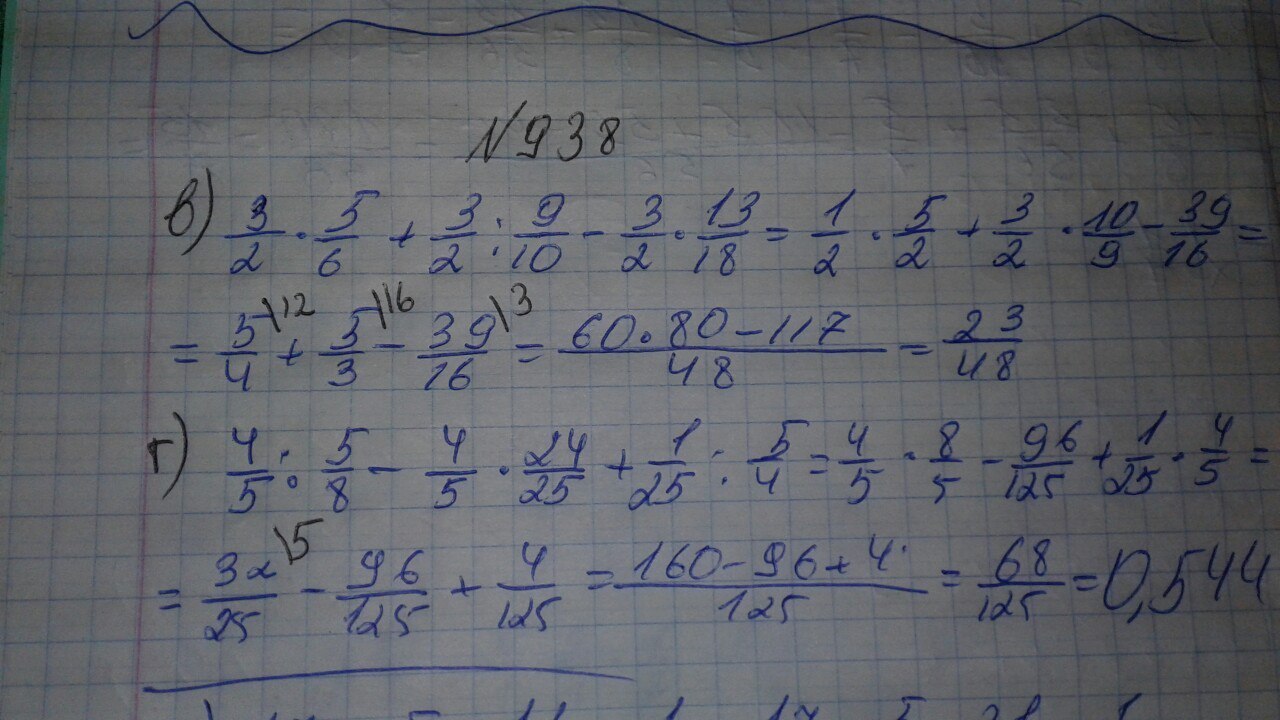 №938
в) 3/2 · 5/6 + 3/2 : 9/10 - 3/2 · 13/18 = 1/2 · 5/2 + 3/2 · 10/9 - 39/16 =
= 5/4 \12 + 5/3 \16 - 39/16 \3 = 60·80-117/48 = 23/48
г) 4/5 : 5/8 - 4/5 · 24/25 + 1/25 : 5/4 = 4/5 · 8/5 - 96/125 + 1/25 · 4/5 =
= 32/25 \5 - 96/125 + 4/125 = 160-96+4/125 = 68/125 = 0,544